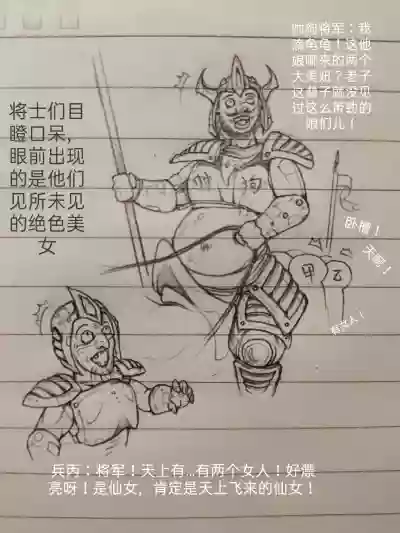 帅狗将军：我
滴龟龟！这他
娘哪来的两个
大美妞？老子
这辈子就没见
过这么带劲的
娘们儿！
将士们目
瞪口呆，
眼前出现
的是他们
见所未见
的绝色美
女
帅狗
卧槽！
天呢！
甲 乙
有女人！
兵丙：将军！天上有...有两个女人！好漂
亮呀！是仙女，肯定是天上飞来的仙女！